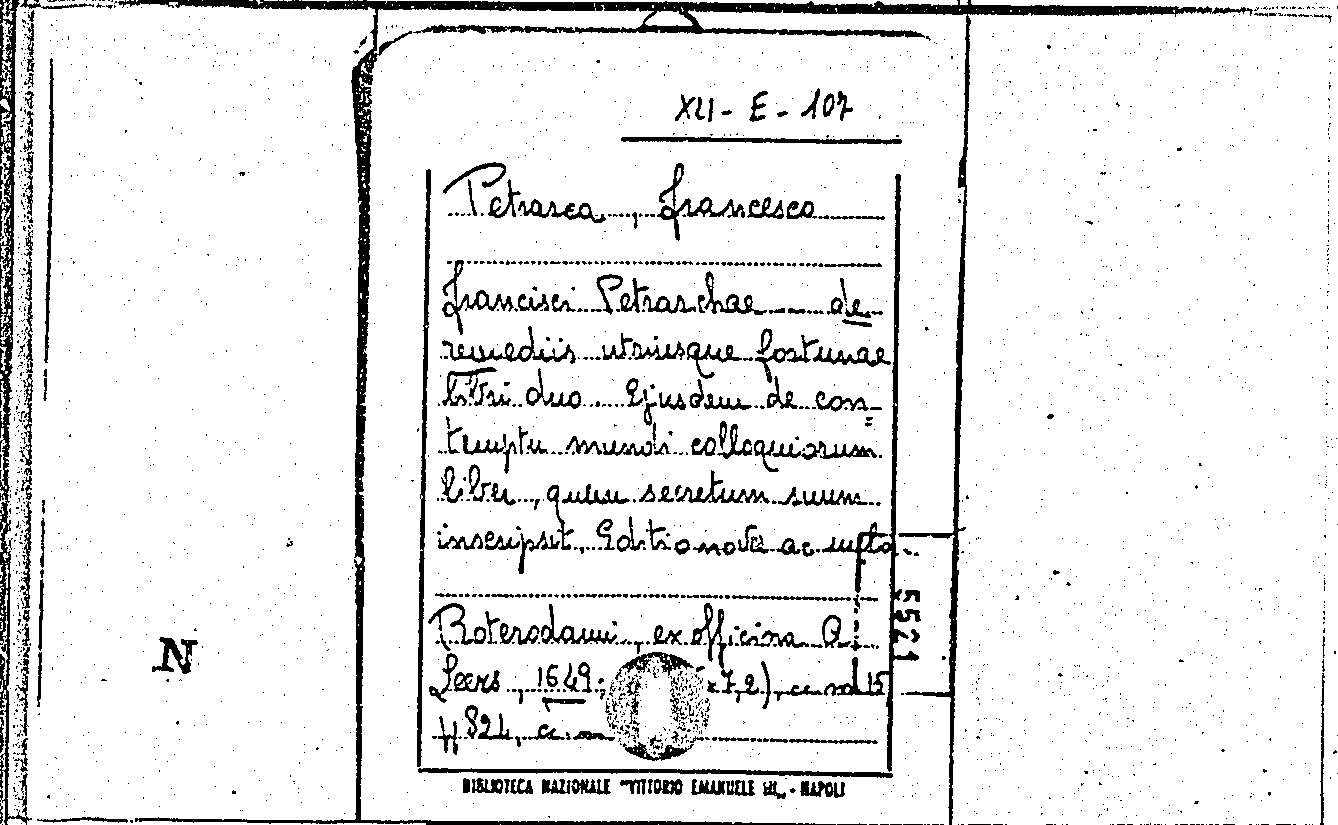 XLI - E - 107
Petrarca, Francesco
Francisci Petrarchae de
remediis utriusque fortunae
libri duo. Ejusdem de con=
temptu mundi colloquiorum
liber, quem secretum suum
inscripsit. Editio nova ac
Roterodami, ex officina A.
Leers, 1649; x7,2), cc. nn. 15
pp. 824, cc. nn
5521
N
BIBLIOTECA NAZIONALE "VITTORIO EMANUELE III" - NAPOLI